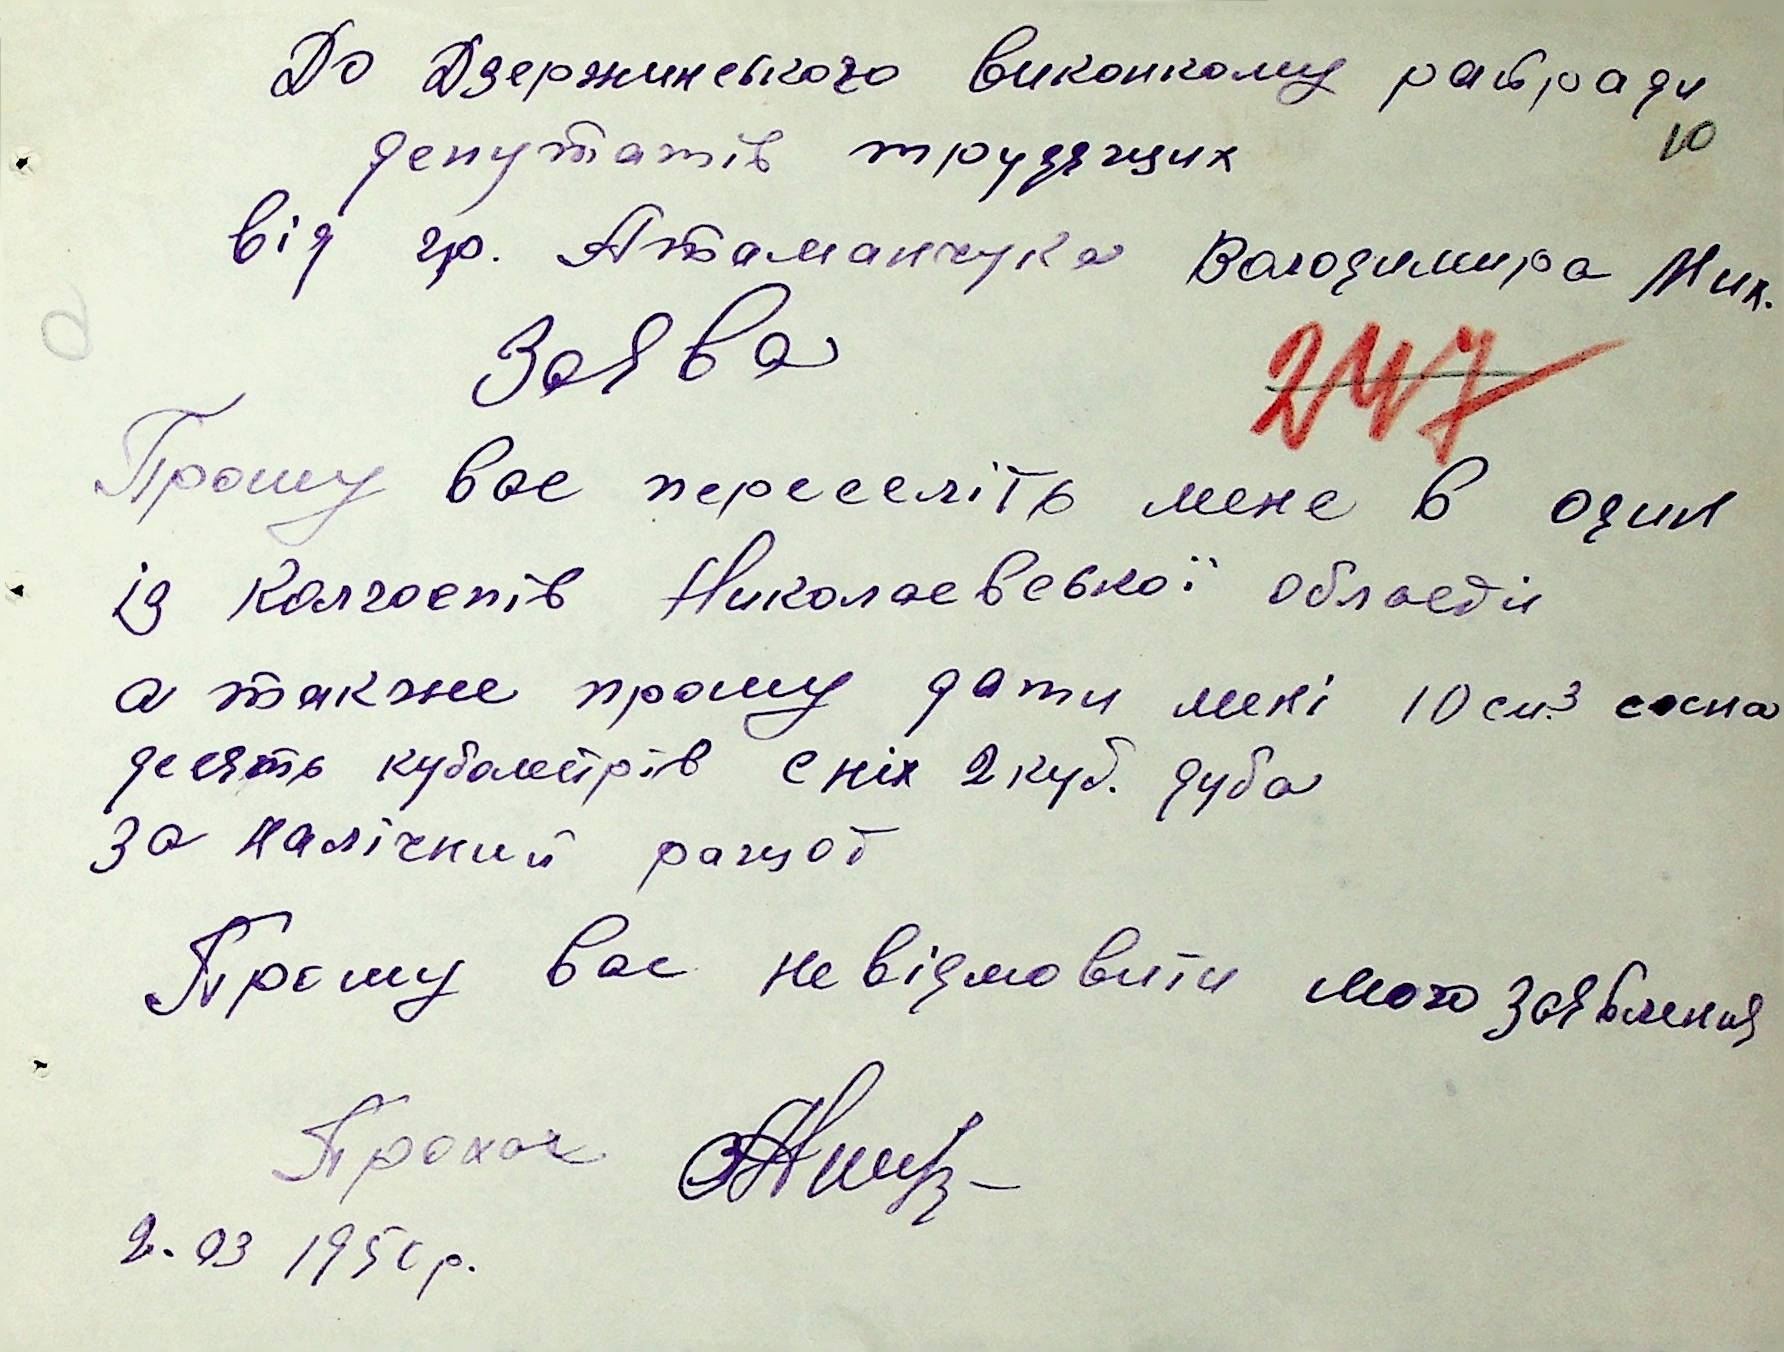 До Дзержинського виконкому райради
10
депутатів трудящих
від гр. Атаманчука Володимира Мик.
Заява
247
Прошу вас переселіть мене в один
із колгоспів Николаєвської області
а также прошу дати мені 10 см.3 сосна
десять кубометрів с ніх 2 куб. дуба
за налічний ращот
Прошу вас не відмовити мого заявления
Прохач
2. 03 1950 р.